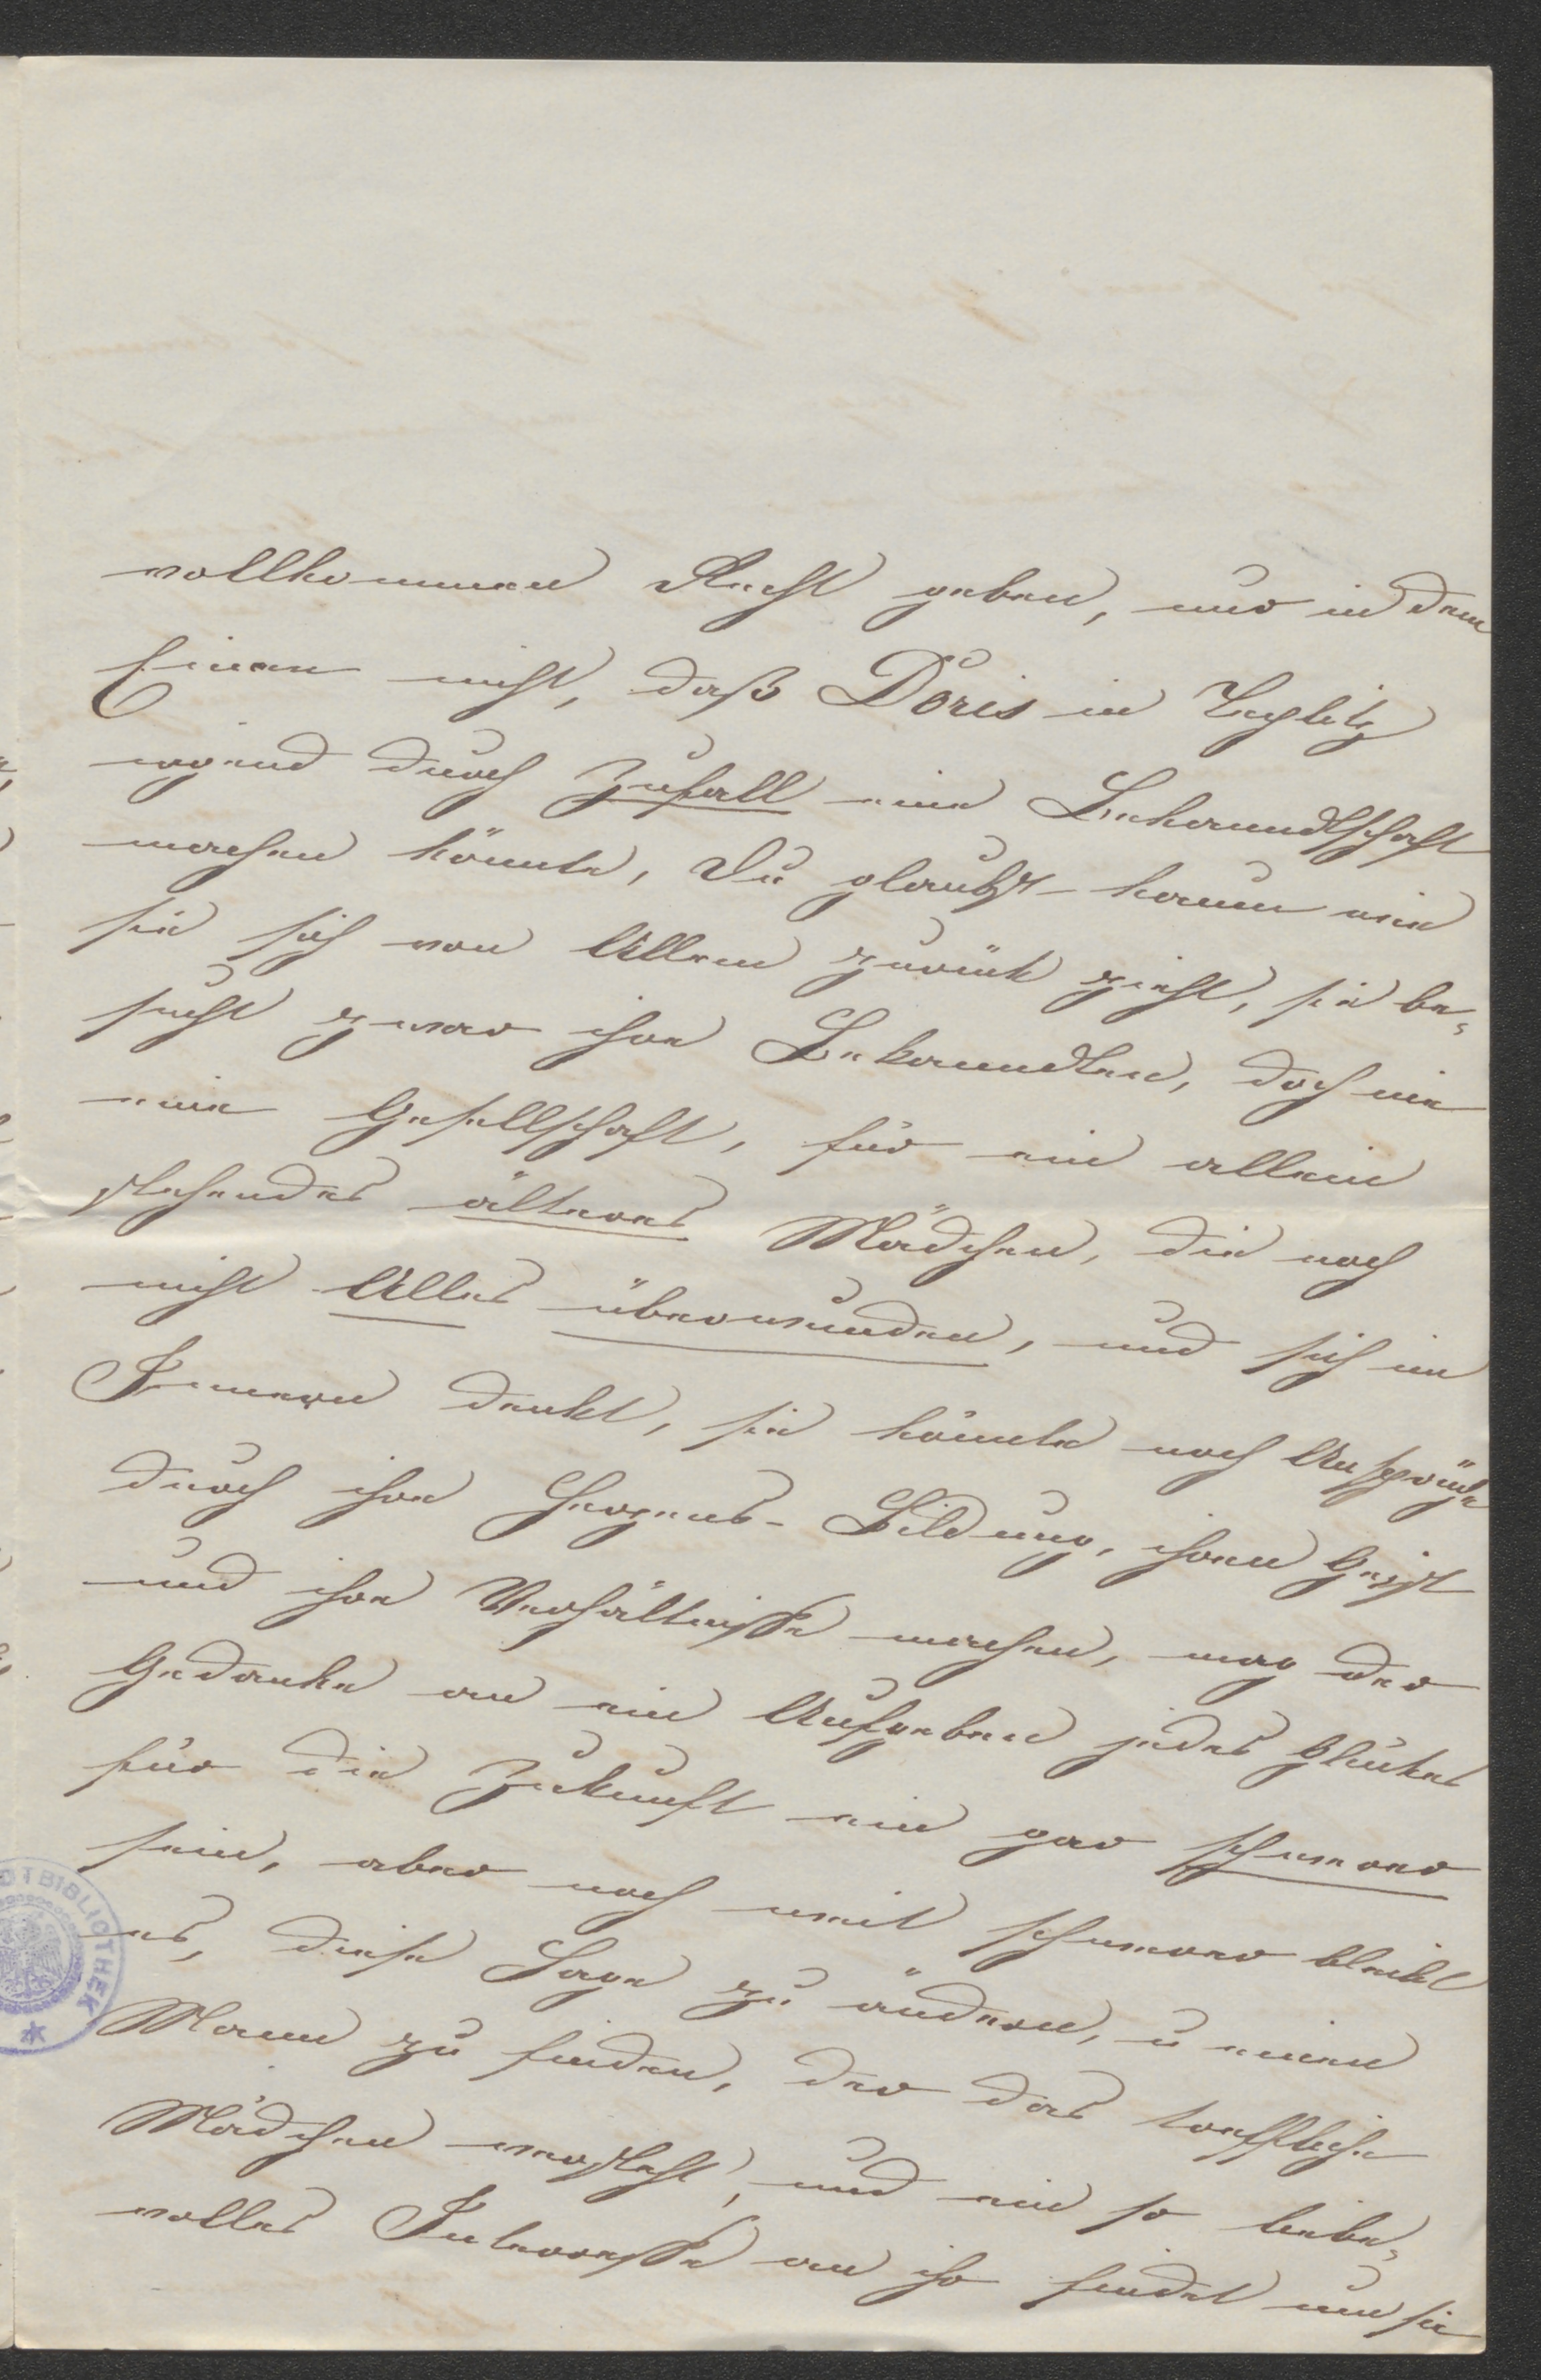 vollkommen Recht geben, nur in dem
Einen nicht, daß Doris in Teplitz
irgend durch Zufall eine Bekanndtschaft
machen könnte, Du glaubst kaum wie
sie sich von Allem zurück zieht, sie be-
sucht zwar ihre Bekanndten, doch nie
eine Gesellschaft, für ein allein
stehendes älteres Mädchen, die noch
nicht Alles überwunden, und sich im
Innern denkt, sie könnte noch Ansprüche
durch ihre Herzens-Bildung, ihren Geist
und ihre Verhältnisse machen, mag der
Gedanke an ein Aufgeben jedes Glückes
für die Zukunft ein gar schwerer
sein, aber noch weit schwerer bleibt
es, diese Lage zu ändern, u einen
Mann zu finden, der das treffliche
Mädchen versteht, und ein so liebe-
volles Interesse an ihr findet um sie
DTBIBLIOTHEK